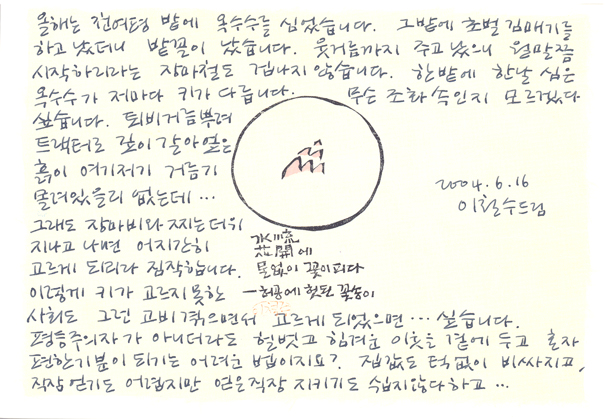 올해는 천여평 밭에 옥수수를 심었습니다. 그밭에 초벌 김매기를
하고 났더니 밭꼴이 났습니다. 웃거름까지 주고 났으니 월말쯤
시작하리라는 장마철도 겁나지 않습니다. 한밭에 한날 심은
옥수수가 저마다 키가 다릅니다. 무슨 조화 속인지 모르겠다
싶습니다. 퇴비거름뿌려
트랙터로 깊이 갈아엎은
흙이 여기저기 거름기
몰려있을리 없는데…
그래도 장마비와 찌는더위
지나고 나면 어지간히
고르게 되리라 짐작합니다.
이렇게 키가 고르지못한
사회도 그런 고비 겪으면서 고르게 되었으면… 싶습니다.
평등주의자가 아니더라도 헐벗고 힘겨운 이웃을 곁에 두고 혼자
편한기분이 되기는 어려운 법이지요? 집값도 턱없이 비싸지고,
직장 얻기도 어렵지만 얻은직장 지키기도 쉽지않다하고…
水流
花開에
물없이 꽃이피다
—허공에 헛된 꽃송이
2004.6.16
이철수드림